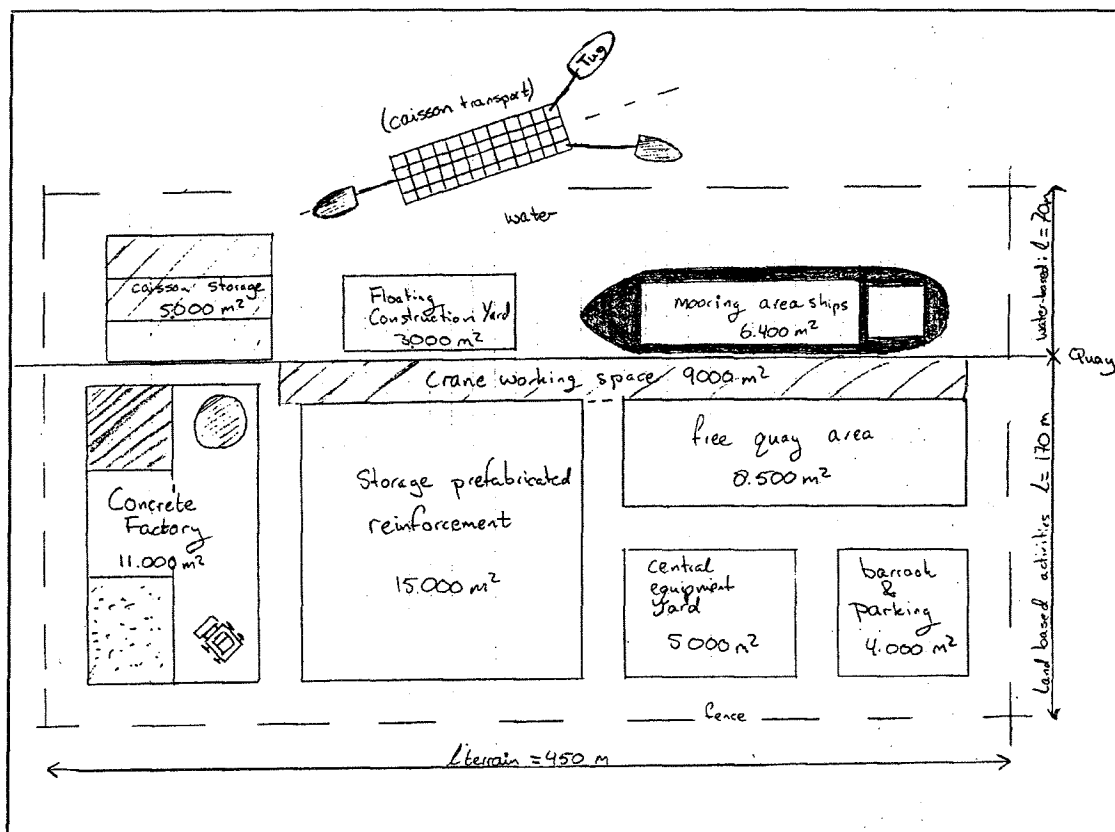 Tug
(caisson transport)
water
water-based: l = 70m
caisson storage
5.000 m²
Floating
Construction Yard
3000 m²
mooring area ships
6.400 m²
Quay
Crane working space 9000 m²
Concrete
Factory
11.000 m²
Storage prefabricated
reinforcement
15.000 m²
free quay area
8.500 m²
central
equipment
Yard
5000 m²
barrack
&
parking
4.000 m²
land based activities l = 170 m
fence
l terrain = 450 m